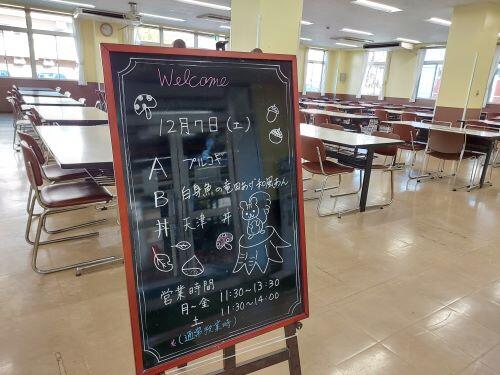 Welcome
12月7日(土)
A プルコギ
B 白身魚の竜田あげ 和風あん
丼 天津丼
営業時間
月～金 11:30～13:30
土 11:30～14:00
(通常授業時)